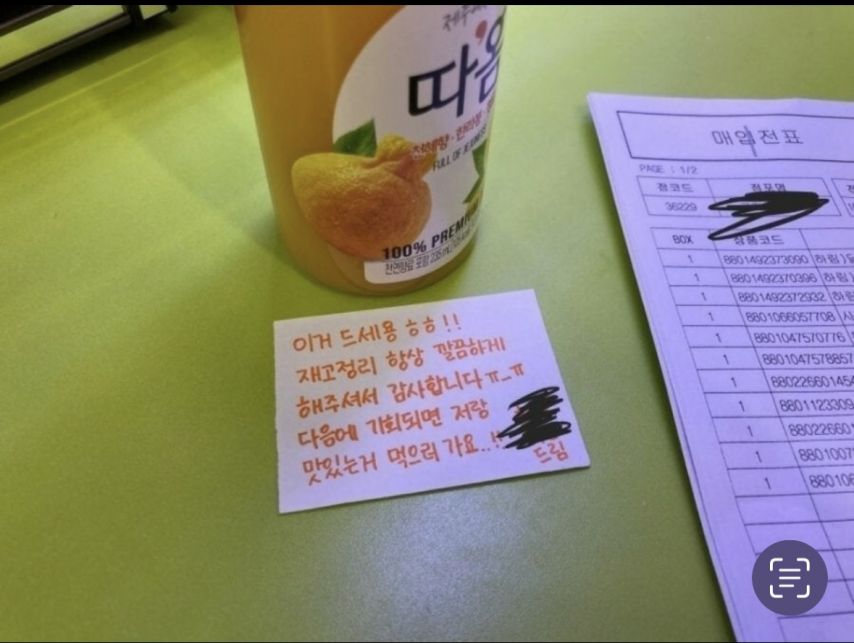 따옴
천혜향·한라봉
FULL OF JEJUNESS
100% PREMIUM
이거 드세용 ㅎㅎ!!
재고정리 항상 깔끔하게
해주셔서 감사합니다 ㅠ_ㅠ
다음에 기회되면 저랑
맛있는거 먹으러 가요..!!
드림
매입전표
PAGE : 1/2
점코드 점포명
36229
BOX 상품코드
1 8801492373090 하림)
1 8801492370396 하림
1 8801492372932 하림
1 8801066057708
1 8801047570776
1 8801047578857
1 88022660145
1 8801123309
1 88022660
1 880100
1 88010